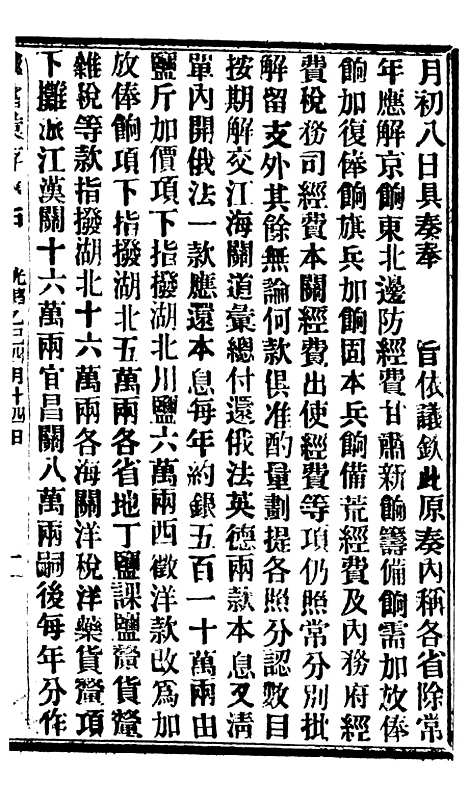 月初八日具奏奉　　旨依議欽此原奏內稱各省除常
年應解京餉東北邊防經費甘肅新餉籌備餉需加放俸
餉加復俸餉旗兵加餉固本兵餉備荒經費及內務府經
費稅務司經費本關經費出使經費等項仍照常分別批
解留支外其餘無論何款俱准酌量劃提各照分認數目
按期解交江海關道彙總付還俄法英德兩款本息又淸
單內開俄法一款應還本息每年約銀五百一十萬兩由
鹽斤加價項下指撥湖北川鹽六萬兩西徵洋款改為加
放俸餉項下指撥湖北五萬兩各省地丁鹽課鹽釐貨釐
雜稅等款指撥湖北十六萬兩各海關洋稅洋藥貨釐項
下攤派江漢關十六萬兩宜昌關八萬兩嗣後每年分作
光緒乙巳四月十四日
二